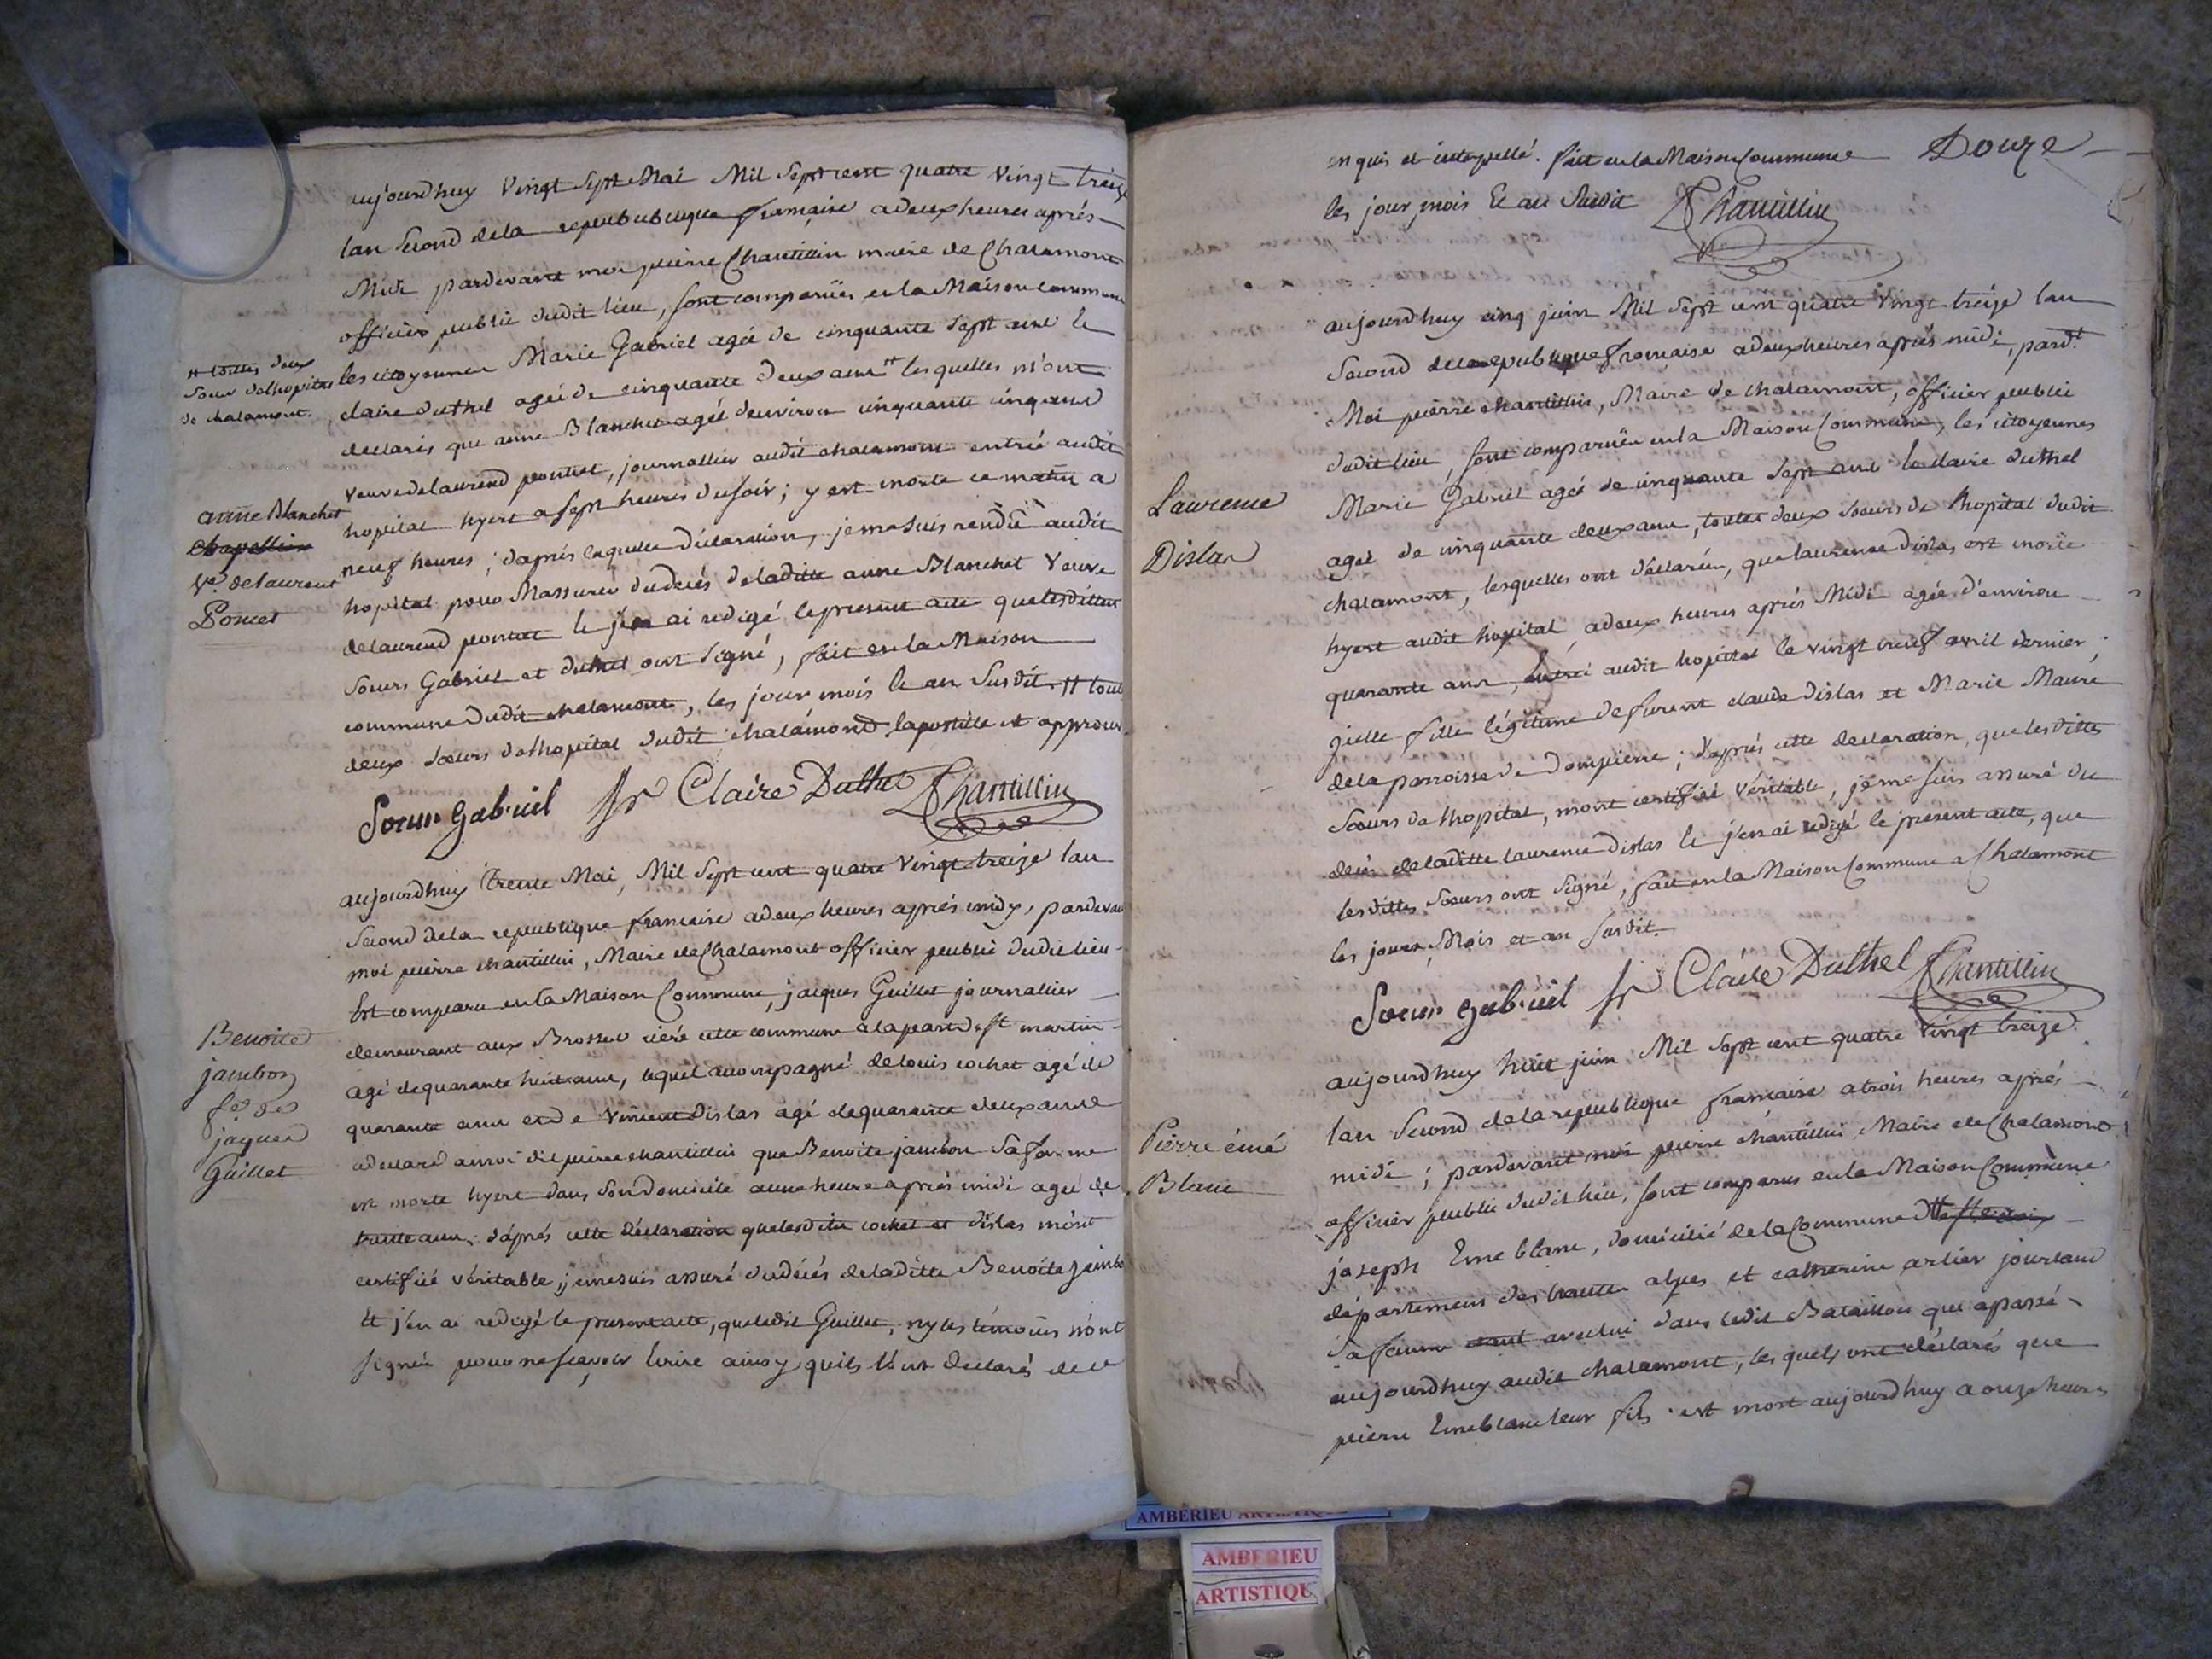 aujourdhuy vingt Sept Mai Mil Sept cent quatre vingt treize
lan Second dela republubique francaise a deux heures aprés
Midi pardevant moi pierre Chantillin maire de Chalamont
officier public dudit lieu, sont comparües en la Maison commune
les citoyennes Marie Gabriel agée de cinquante Sept ans le
claire duthel ageé de cinquante deux ans # lesquelles m'ont
# toutes deux
Sœur delhopital
de chalamont.
declarés que anne Blanchet agée denviron cinquante cinq ans
veuve delaurend pontet, journallier audit chalamont entrée audit
hopital hyert a Sept heures du soir; y est morte ce matin a
neuf heures; daprés laquelle déclaration, je me suis rendü audit
hopital pour Massurer du decés deladitte anne Blanchet Veuve
delaurend pontet le j'en ai redigé le present acte que lesdittes
Soeurs Gabriel et duthel ont Signé, fait en la Maison
commune dudit chalamont, les jour mois le an Susdit # tout
deux Soeurs delhopital dudit chalamond lapostille et approuv.
anne Blanchet
chapellier
Ve. de laurent
Poncet
Soeur gabriel Sr Claire Duthel Chantillin
aujourdhuy trente Mai, Mil Sept cent quatre vingt treize lan
Second dela republique francaise a deux heures aprés midy, pardevan
moi pierre chantillin, Maire de Chalamont officier public dudit lieu
Est comparu en la Maison Commune, jacques Guillet journallier
demeurant aux Brosses riéré cette commune a la part de st martin
agé de quarante huit ans, lequel accompagné delouis cochet agé de
quarante ans et de Vincent dislas agé de quarante deux ans
a declaré a moi dit pierre chantillin que Benoite jambon Sa femme
est morte hyert dans Son domicile a une heure aprés midi agée de
trente ans. d'aprés cette déclaration que lesdits cochet et dislas m'ont
certifié véritable, je me suis assuré du décés deladitte Benoite jambo
Et j'en ai redigé le present acte, que ledit Guillet, ny les témoins n'ont
Signés pour ne sçavoir Ecrire ainsy quils l'ont declarés de ce
Benoite
jambon
fe. de
jaques
Guillet
enquis et interpellé. fait en la Maison Commune Douze
les jour, mois Et an Susdit Chantillin
aujourdhuy cinq juin Mil Sept cent quatre vingt treize lan
Second de la republique francaise a deux heures aprés midi, pardt.
Moi pierre chantillin, Maire de chalamont, officier public
dudit lieu, sont comparües en la Maison Commune, les citoyennes
Marie Gabriel ageé de cinquante Sept ans le claire duthel
ageé de cinquante deux ans, toutes deux Sœurs de lhopital dudit
chalamont, lesquelles ont déclarées, que laurence dislas est morte
hyert audit hopital a deux heures aprés Midi agée d'environ
quarante ans, Entrée audit hopital le vingt neuf avril dernier;
icelle fille légitime de furent claude dislas et Marie Maure
dela parroisse de dompierre; d'aprés cette declaration, que lesdittes
Sœurs de lhopital, m'ont certifié Véritable, je me suis assuré du
decés deladitte laurence dislas le j'en ai redigé le present acte, que
lesdittes Soeurs ont Signé, fait en la Maison Commune a Chalamont
les jours, Mois et an susdit.
Laurence
Dislas
Soeur gabriel Sr Claire Duthel Chantillin
aujourdhuy huit juin Mil Sept cent quatre vingt treize
lan Second de la republique francaise a trois heures aprés
midi; pardevant moi pierre chantillin, Maire de Chalamont
officier public dudit lieu, sont comparus en la Maison Commune
joseph Eme blanc, domicilié de la Commune
département des hautes alpes et catherine artier jourdand
sa femme avec lui dans ledit Bataillon qui a passé
aujourdhuy audit chalamont, lesquels ont déclarés que
pierre Eme blanc leur fils est mort aujourdhuy a onze heures
Pierre émé
Blanc
AMBERIEU ARTISTIQUE
AMBERIEU
ARTISTIQU